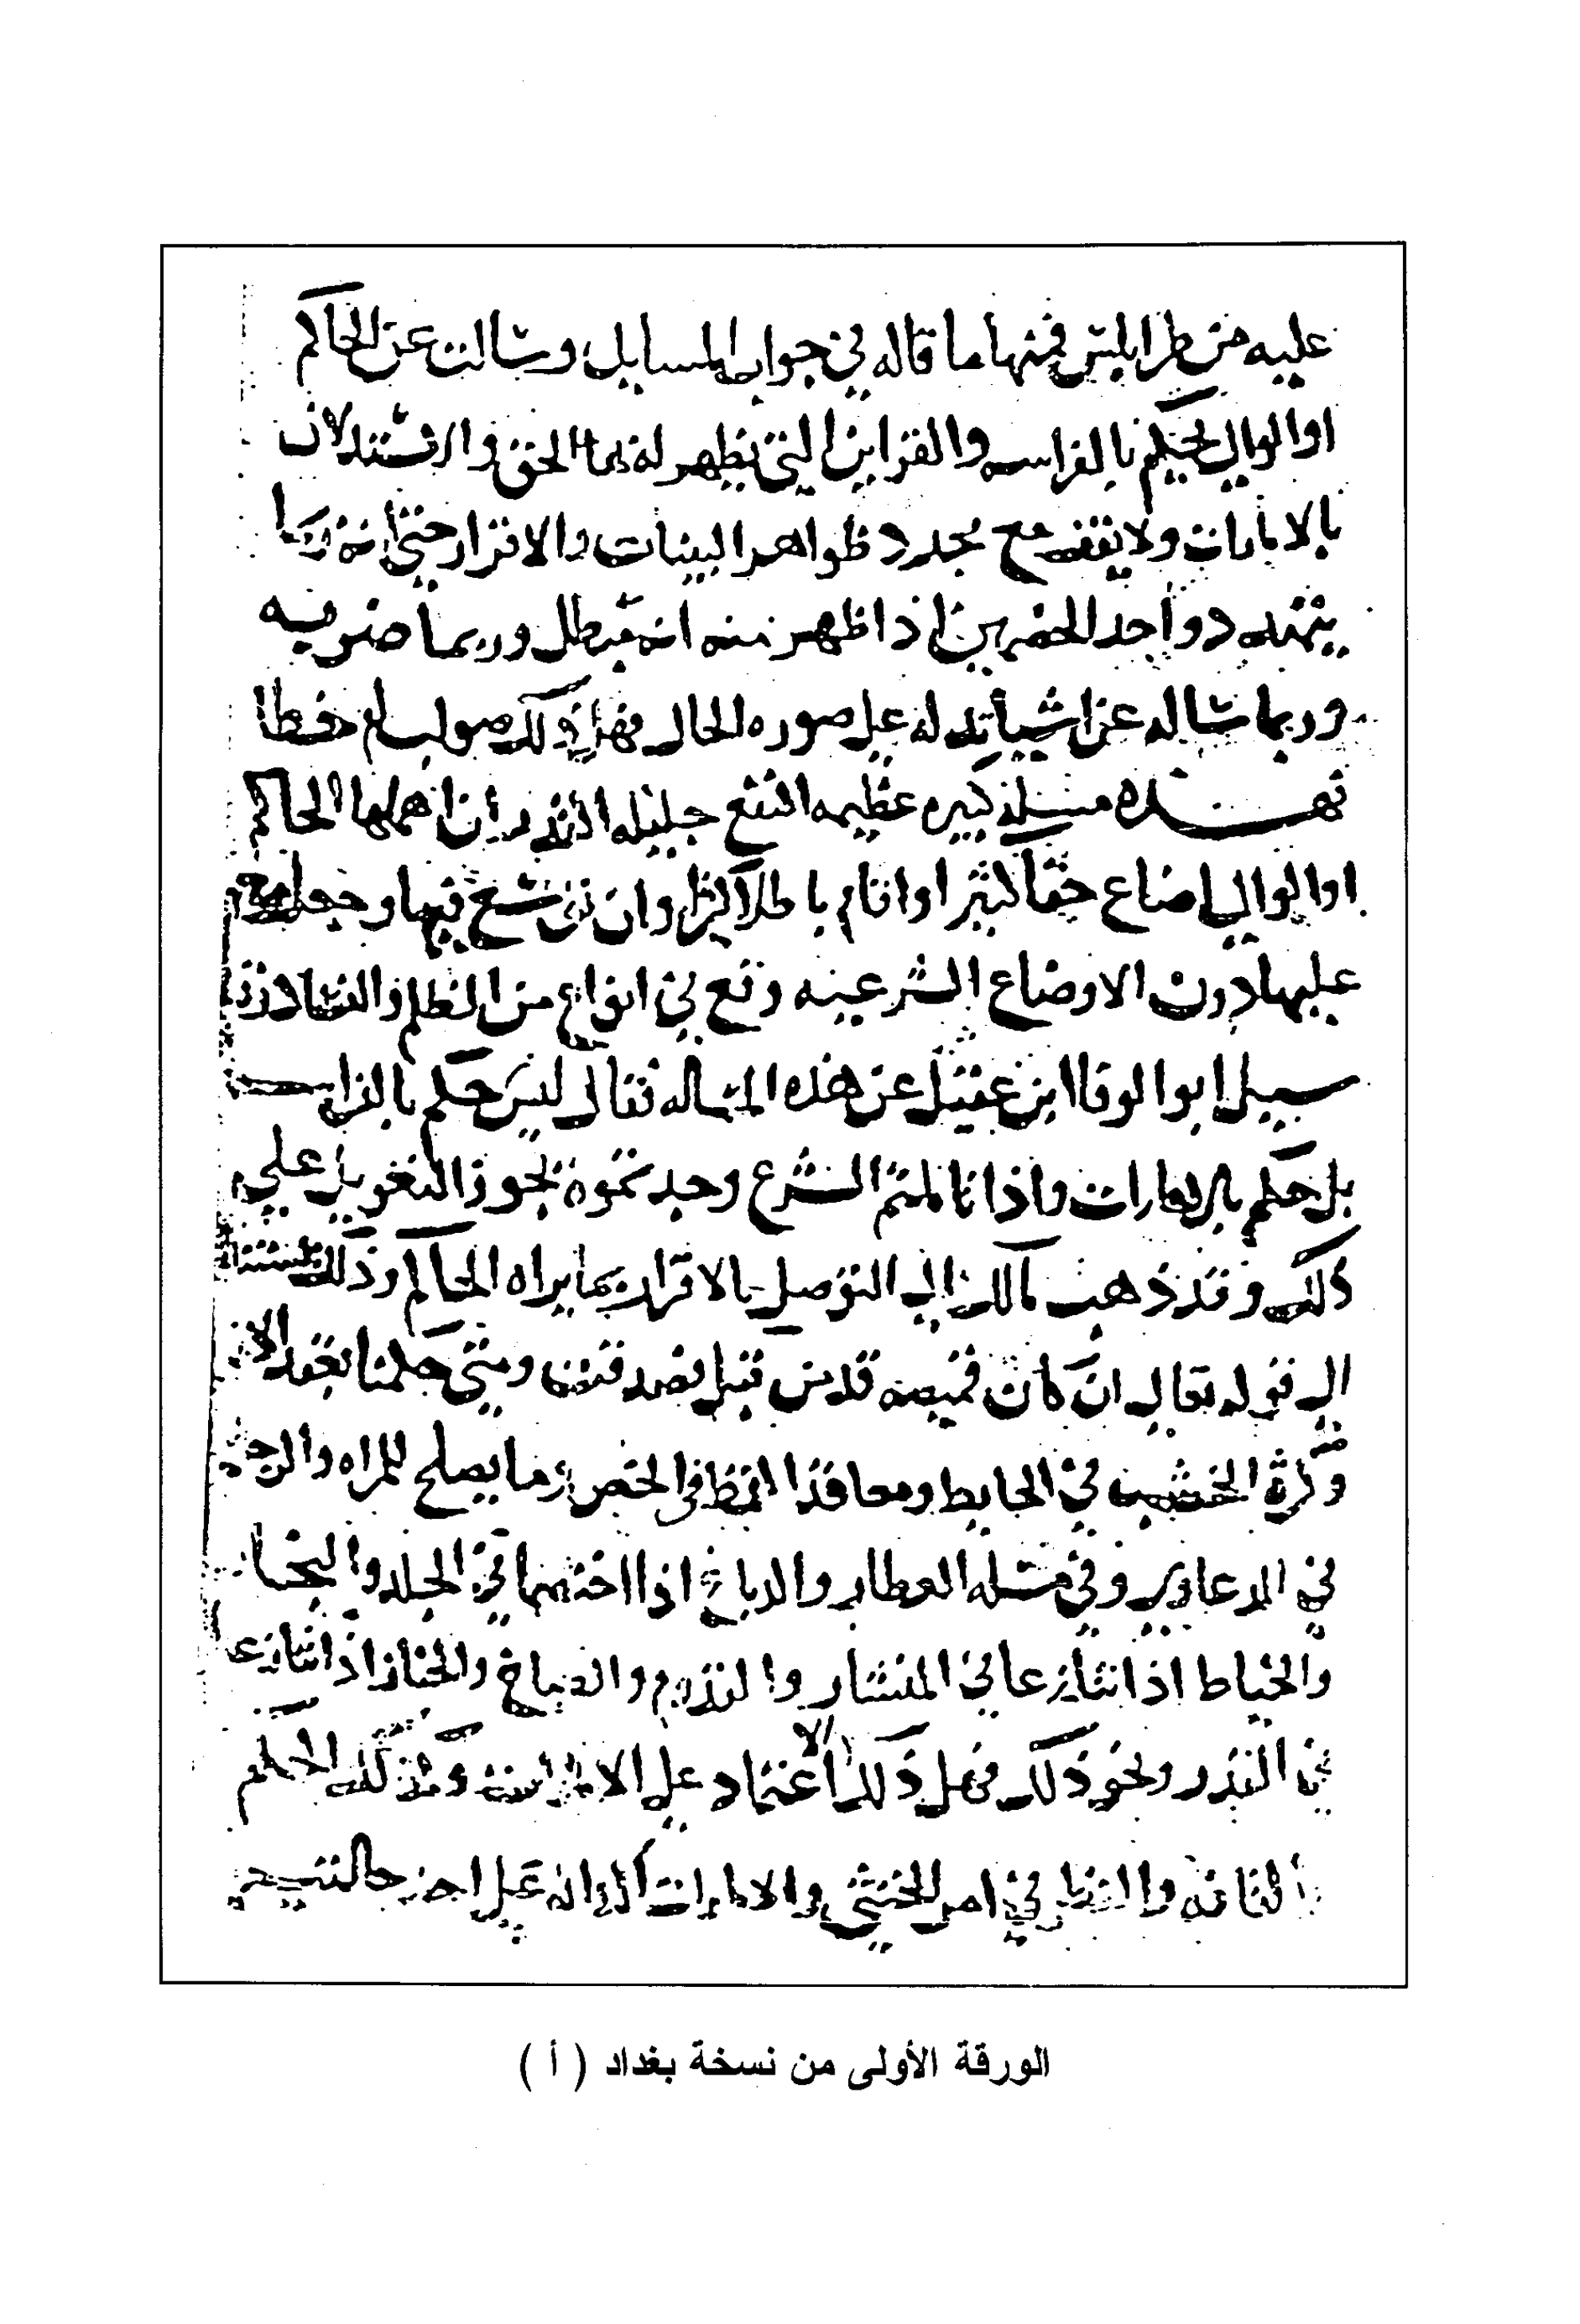 عليه من طرابلس فمنها ما قاله في جواب المسايل وسالت عن الحاكم
او الوالي يحكم بالفراسه والقراين التي يظهر له بها الحق والاستدلال
بالامارات ولا يقف مع مجرد ظواهر البينات والاقرار حتى انه ربما
يتهدد احد الخصمين اذا ظهر منه انه مبطل وربما ضربه
وربما ساله عن اشيا تدله على صوره الحال فهل ذلك صواب ام خطا
فهذه مسلة كبيره عظيمه النفع جليله القدر ان اهملها الحاكم
او الوالي اضاع حقا كثيرا واقام باطلا كثيرا وان توسع فيها وجعل معوله
عليها دون الاوضاع الشرعيه وقع في انواع من الظلم والفساد وقد
سيل ابو الوفا ابن عقيل عن هذه المساله فقال ليس حكم بالفراسه
بل حكم بالامارات واذا تاملتم الشرع وجدتموه يجوز التعويل على
ذلك وقد ذهب مالك الى التوصل بالاقرار بما يراه الحاكم وذلك يستند
الى قوله تعالى ان كان قميصه قد من قبل فصدقت ومتى حكمنا بعقد الازج
وكثرة الخشب في الحايط ومعاقد القمط في الخص وما يصلح للمراه والرجل
في الدعاوى وفي مسله العطار والدباغ اذا اختصما في الجلد والنجار
والخياط اذا تنازعا في المنشار والقدوم والطباخ والخباز اذا تنازعا
في القدر ونحو ذلك فهل ذلك الا اعتماد على الامارات وكذلك الحكم
بالقافه والنظر في امر الخنثى والامارات الداله على احد حالتيه
الورقة الأولى من نسخة بغداد ( أ )